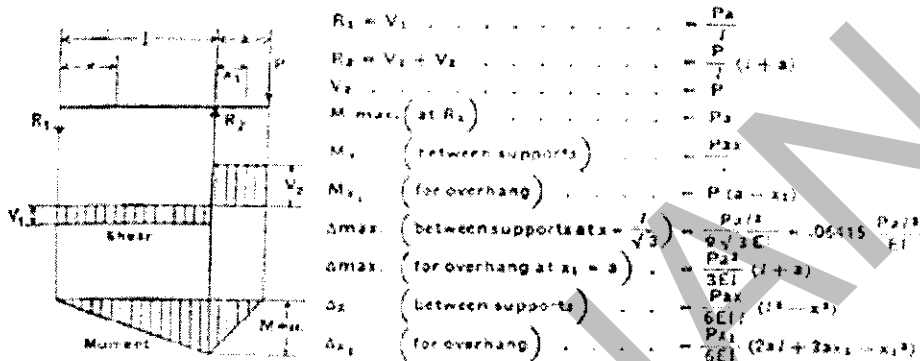 l a
x x₁ P
R₁ R₂
V₂
V₁
Shear
Moment
R₁ = V₁ . . . . . . . . = Pa/l
R₂ = V₁ + V₂ . . . . . . . = P/l (l + a)
V₂ . . . . . . . . . = P
M max. (at R₂) . . . . . . = Pa
Mₓ (between supports) . . . = Pax
Mₓ₁ (for overhang) . . . . = P (a − x₁)
Δmax. (between supports at x = l/√3) = Pal²/9√3 EI = .06415 Pal²/EI
Δmax. (for overhang at x₁ = a) . = Pa²/3EI (l + a)
Δx (between supports) . . = Pax/6EIl (l² − x²)
Δx₁ (for overhang) . . . = Px₁/6EI (2al + 3ax₁ − x₁²)